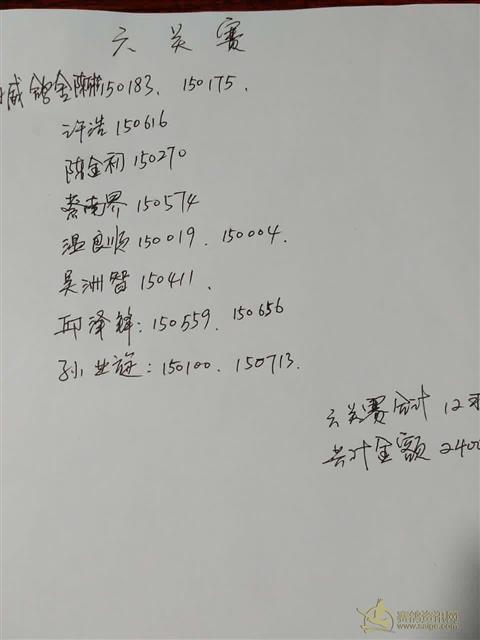 六关赛
威鸽舍陈彬150183. 150175.
许浩150616
陈金初150270
黄南界150574
温良顺150019. 150004.
吴洲智150411.
邱泽锋:150559. 150656
孙业旋:150100. 150713.
六关赛合计 12羽
共计金额 2400
赛鸽资讯网
www.saige.com